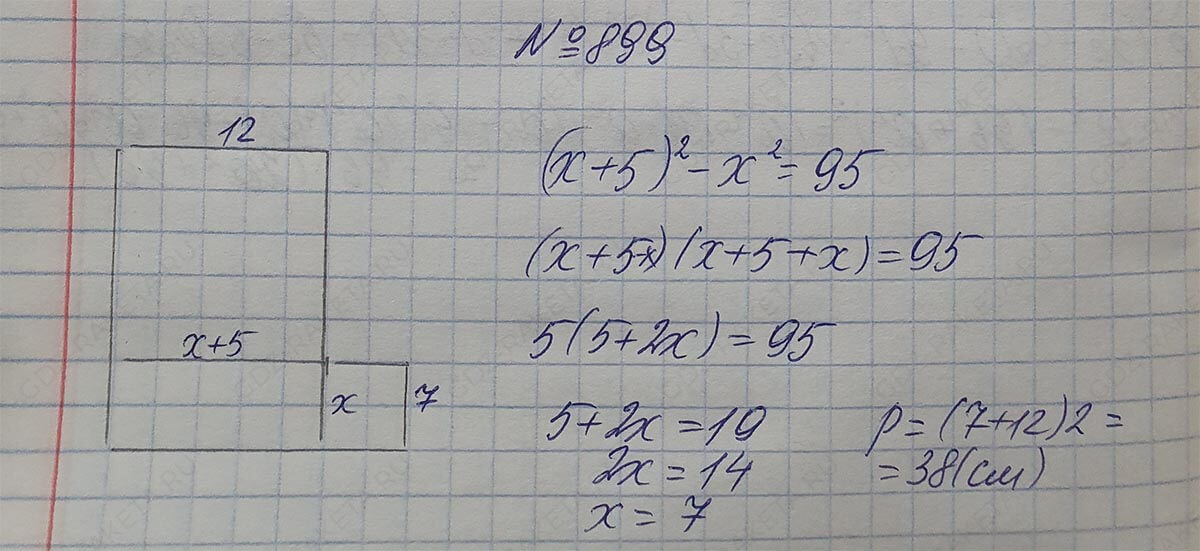 №899
12
x+5
x
7
(x+5)²-x²=95
(x+5-x)(x+5+x)=95
5(5+2x)=95
5+2x=19
2x=14
x=7
p=(7+12)2=
=38(см)